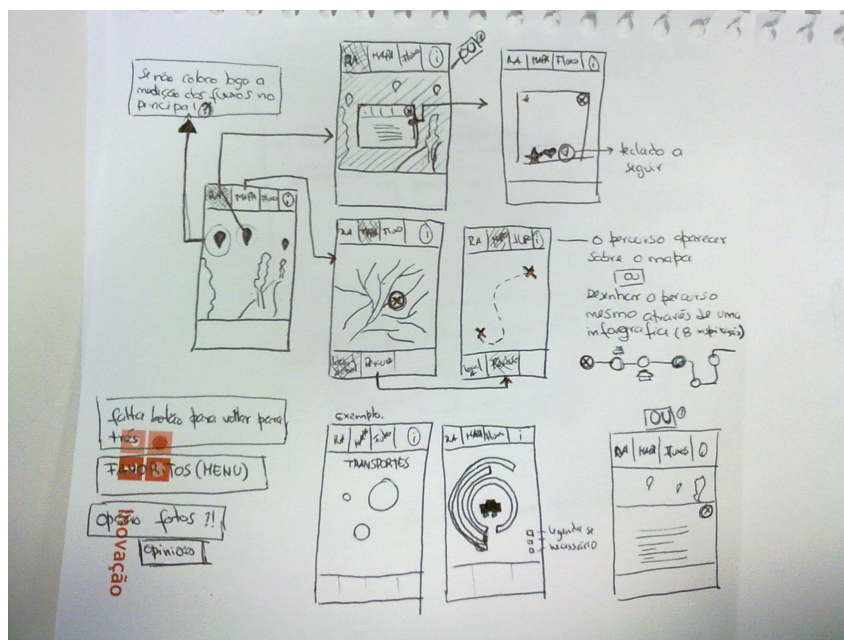 Se não coloco logo a
medição dos fluxos no
principal?
RA MAPA FLUXO i
OU
RA MAPA FLUXO i
teclado a
seguir
RA MAPA FLUXO i
RA MAPA FLUXO i
local
actual Percurso
RA MAPA i
local Percurso
o percurso aparecer
sobre o mapa
OU
Desenhar o percurso
mesmo através de uma
infografia (8 inspiração)
falta botão para voltar para
trás
FAVORITOS (MENU)
opção fotos ?!
opiniões
Inovação
Exemplo.
RA MAPA FLUXO i
TRANSPORTES
RA MAPA FLUXO i
legenda se
necessário
OU
RA MAPA FLUXOS i